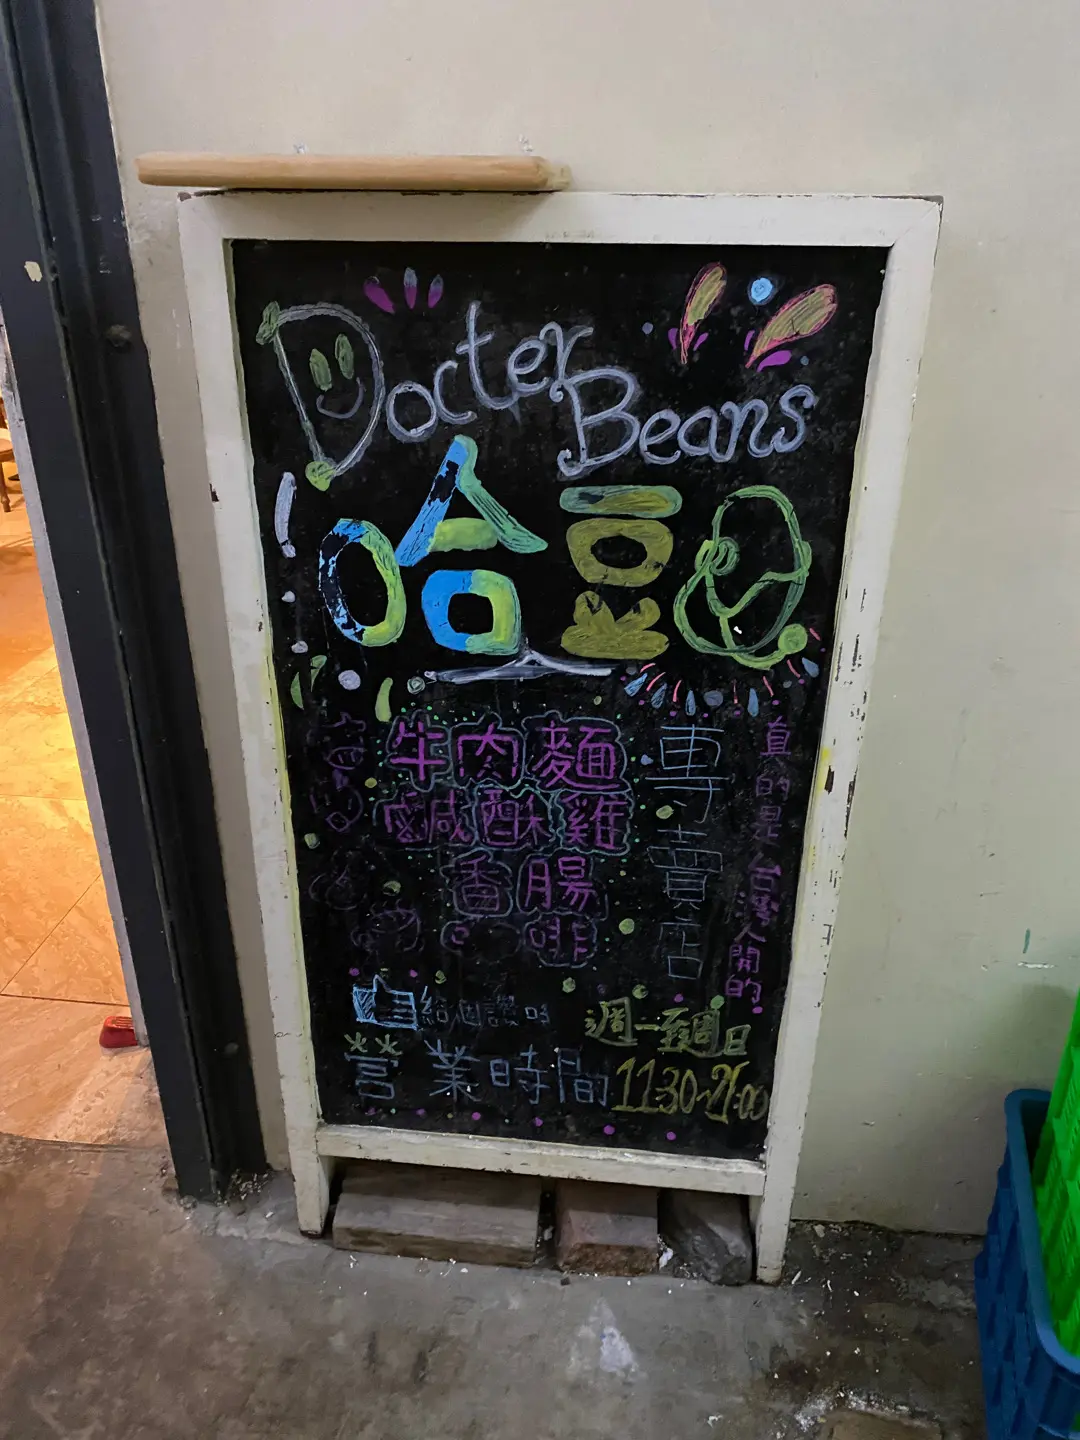 Docter
Beans
哈豆
牛肉麵
鹹酥雞
香腸
啡
專賣店
真的是台灣人開的
給個讚唷
週一至週日
營業時間 11:30~21:00